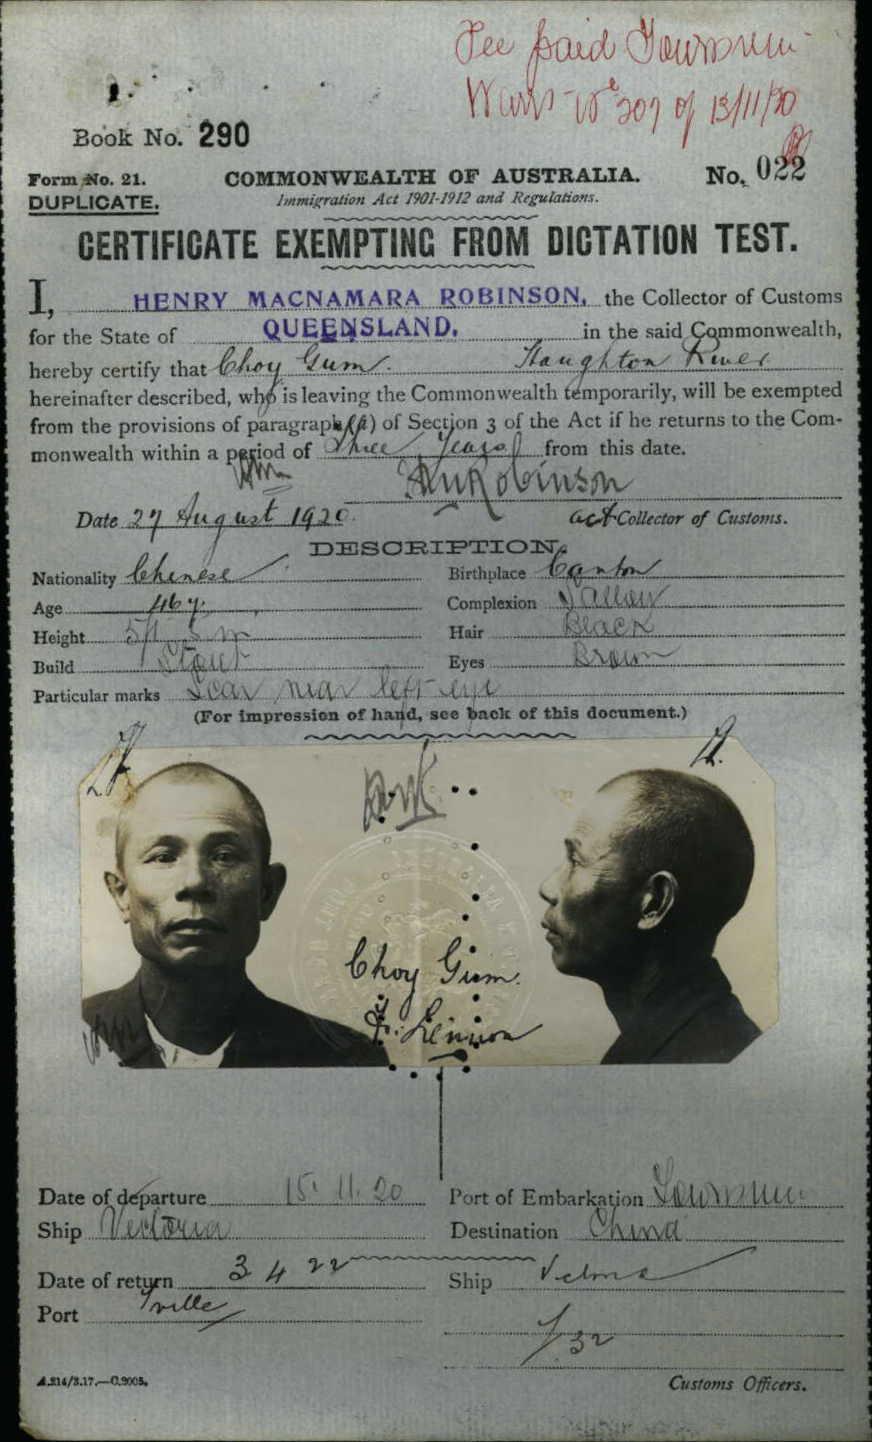 Fee paid Townsville
No 207 of 13/11/20
Book No. 290
Form No. 21.
COMMONWEALTH OF AUSTRALIA.
No. 022
DUPLICATE.
Immigration Act 1901-1912 and Regulations.
CERTIFICATE EXEMPTING FROM DICTATION TEST.
I, HENRY MACNAMARA ROBINSON, the Collector of Customs
for the State of QUEENSLAND, in the said Commonwealth,
hereby certify that Choy Gum. Haughton River
hereinafter described, who is leaving the Commonwealth temporarily, will be exempted
from the provisions of paragraph (a) of Section 3 of the Act if he returns to the Com-
monwealth within a period of Three Years from this date.
HMRobinson
Date 27 August 1920.
act Collector of Customs.
DESCRIPTION.
Nationality Chinese
Birthplace Canton
Age 46 y.
Complexion Yallow
Height 5ft 5 in
Hair Black
Build Stout
Eyes Brown
Particular marks Scar near left eye
(For impression of hand, see back of this document.)
Choy Gum.
F. Lennon
Date of departure 15. 11. 20
Port of Embarkation Townsville
Ship Victoria
Destination China
Date of return 3 4 22
Ship
Port Tville
32
A.214/3.17.—C.9005.
Customs Officers.